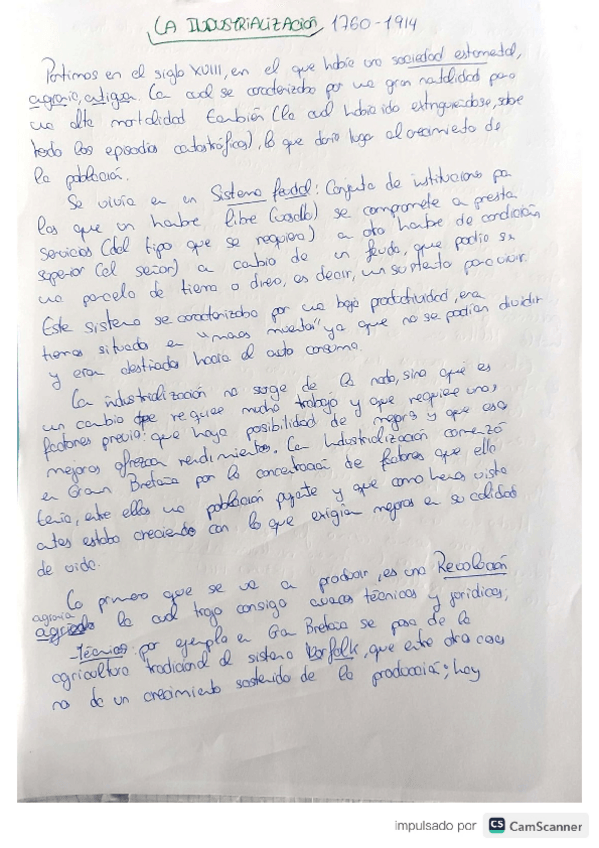 LA INDUSTRIALIZACIÓN, 1760-1914
Partimos en el siglo XVIII, en el que había una sociedad estamental,
agraria, antigua. La cual se caracterizaba por una gran natalidad pero
una alta mortalidad también (la cual había ido extinguiéndose, sobre
todo los episodios catastróficos), lo que daría lugar al crecimiento de
la población.
Se vivía en un Sistema feudal: Conjunto de instituciones por
las que un hombre libre (vasallo) se compromete a prestar
servicios (del tipo que se requiera) a otro hombre de condición
superior (el señor) a cambio de un feudo, que podía ser
una parcela de tierra o dinero, es decir, un sustento para vivir.
Este sistema se caracterizaba por una baja productividad, eran
tierras situadas en "manos muertas" ya que no se podían dividir
y eran destinadas hacia el auto consumo.
La industrialización no surge de la nada, sino que es
un cambio que requiere mucho trabajo y que requiere unos
factores previos: que haya posibilidad de mejora y que esas
mejoras ofrezcan rendimientos. La Industrialización comenzó
en Gran Bretaña por la concentración de factores que ella
tenía, entre ellos una población pujante y que como hemos visto
antes estaba creciendo con lo que exigían mejoras en su calidad
de vida.
Lo primero que se va a producir, es una Revolución
agraria la cual trajo consigo avances técnicos y jurídicos;
-Técnicos: por ejemplo en Gran Bretaña se pasa de la
agricultura tradicional al sistema Norfolk, que entre otras cosas
nos da un crecimiento sostenido de la producción; hay
impulsado por CS CamScanner